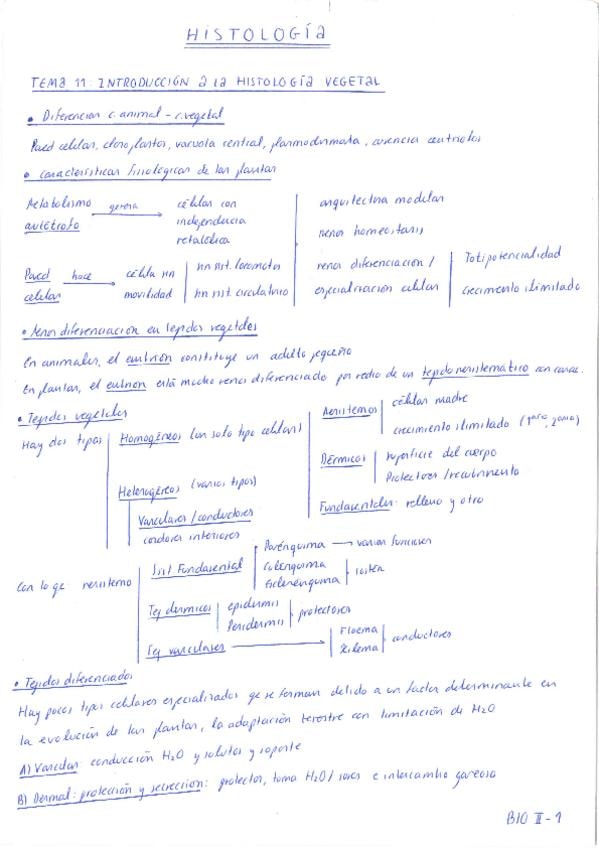 HISTOLOGÍA
TEMA 11: INTRODUCCIÓN A LA HISTOLOGÍA VEGETAL
• Diferencias c. animal - c. vegetal
Pared celular, cloroplastos, vacuola central, plasmodesmata, ausencia centriolos
• Características fisiológicas de las plantas
Metabolismo autótrofo genera → células con independencia metabólica
Pared celular hace → célula sin movilidad
sin sist. locomotor
sin sist. circulatorio
arquitectura modular
menor homeostasis
menor diferenciación / especialización celular
Totipotencialidad
crecimiento ilimitado
• Menor diferenciación en tejidos vegetales
En animales, el embrión constituye un adulto pequeño
En plantas, el embrión está mucho menos diferenciado por medio de un tejido meristemático con
• Tejidos vegetales
Hay dos tipos
Homogéneos (un solo tipo celular)
Meristemos
células madre
crecimiento ilimitado (1ario, 2arios)
Dérmicos
superficie del cuerpo
Protectores / recubrimiento
Fundamentales: relleno y otro
Heterogéneos (varios tipos)
Vasculares / conductores
interiores
Con lo qe: meristemo
Sist. Fundamental
Parénquima → varias funciones
Colénquima
Esclerénquima
sostén
Tej dérmicos
epidermis
Peridermis
protectores
Tej vasculares →
Floema
Xilema
conductores
• Tejidos diferenciados
Hay pocos tipos celulares especializados qe se forman debido a un factor determinante en
la evolución de las plantas, la adaptación terrestre con limitación de H2O
A) Vascular: conducción H2O y solutos y soporte
B) Dermal: protección y secreción: protector, toma H2O / e intercambio gaseoso
BIO II-1